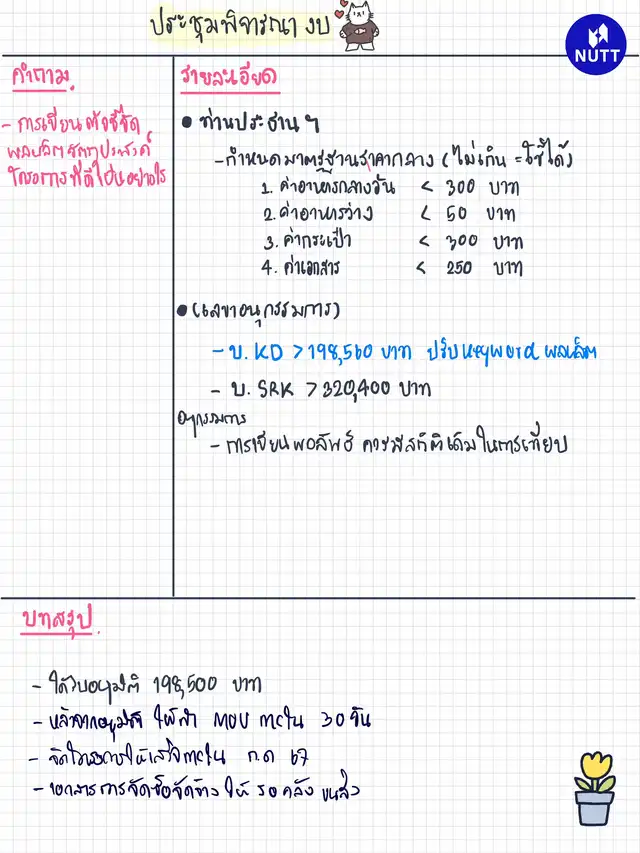 ประชุมพิจารณา งบ
NUTT
คำถาม
- การเขียนตัวชี้วัด
ผลผลิต วัตถุประสงค์
โครงการที่ดีเป็นอย่างไร
รายละเอียด
● ท่านประธานฯ
- กำหนดมาตรฐานราคากลาง (ไม่เกิน = ใช้ได้)
1. ค่าอาหารกลางวัน < 300 บาท
2. ค่าอาหารว่าง < 50 บาท
3. ค่ากระเป๋า < 300 บาท
4. ค่าเอกสาร < 250 บาท
● (เลขาอนุกรรมการ)
- บ. KD > 198,560 บาท ปรับ keyword ผลผลิต
- บ. SRK > 320,400 บาท
อนุกรรมการ
- การเขียนผลลัพธ์ ควรมีสถิติเดิมในการเทียบ
บทสรุป
- ได้รับอนุมัติ 198,500 บาท
- หลังจากอนุมัติ ให้ทำ MOU ภายใน 30 วัน
- จัดโครงการให้เสร็จภายใน ก.ย 67
- เอกสารการจัดซื้อจัดจ้าง ให้ รอคลัง